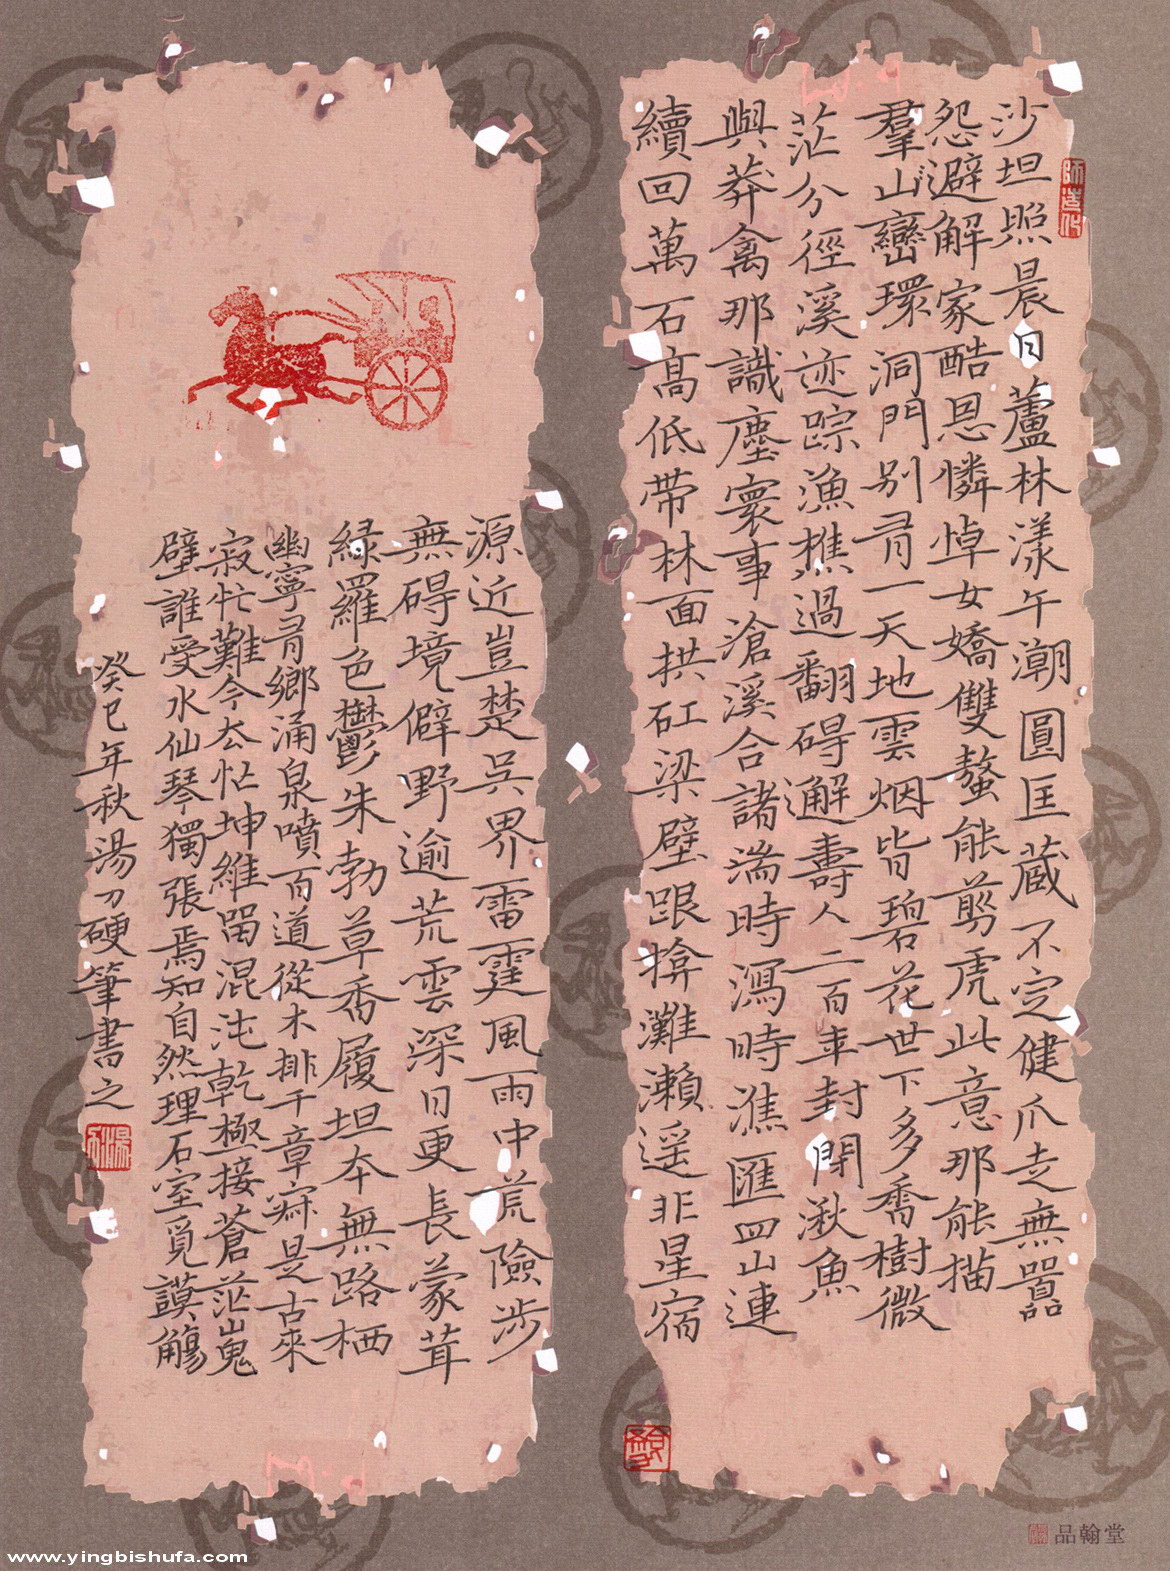 沙坦照晨日蘆林漾午潮圓匡蔵不定健爪走無嚣
怨避解家酷恩憐悼女嬌雙螯能剪虎此意那能描
羣山巒環洞門別有一天地雲烟皆碧花世下多喬樹微
茫分徑溪迹踪漁樵過翻碍邂壽人二百年封閉湫魚
與莽禽那識塵寰事滄溪合諸湍時瀉時潐匯四山連
續回萬石高低带林面拱矼梁壁跟揜灘瀨遥非星宿
源近豈楚吴界雷霆風雨中荒險涉
無碍境僻野逾荒雲深日更長蒙茸
緑羅色鬱朱勃草香履坦本無路栖
幽寧有鄉涌泉噴百道從木排千章寂是古來
寂忙難今忙坤維留混沌乾極接蒼茫嵬
壁誰受水仙琴獨張焉知自然理石室覓謨觴
癸巳年秋湯刀硬筆書之
師造化
品翰堂
www.yingbishufa.com